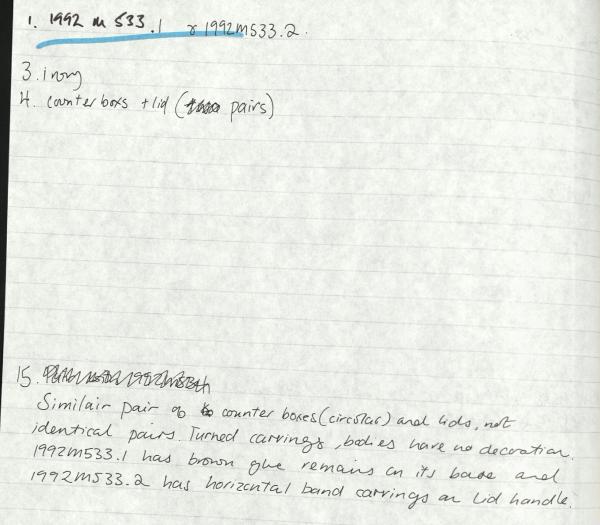 1. 1992 m 533.1 & 1992m533.2.
3. ivory
4. counter boxs + lid ( pairs)
15.
Similair pair of counter boxes (circular) and lids, not
identical pairs. Turned carvings, bodies have no decoration.
1992m533.1 has brown glue remains on its base and
1992m533.2 has horizontal band carvings on lid handle.